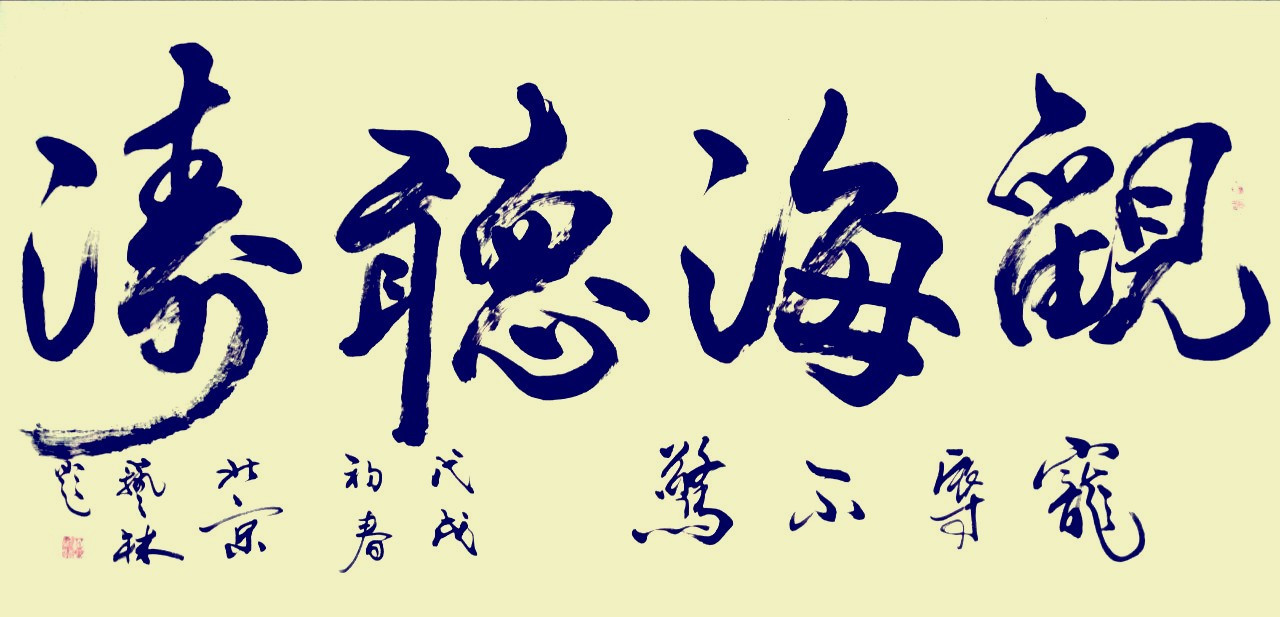 觀海聽濤
寵辱不驚
戊戌
初春
北京
林